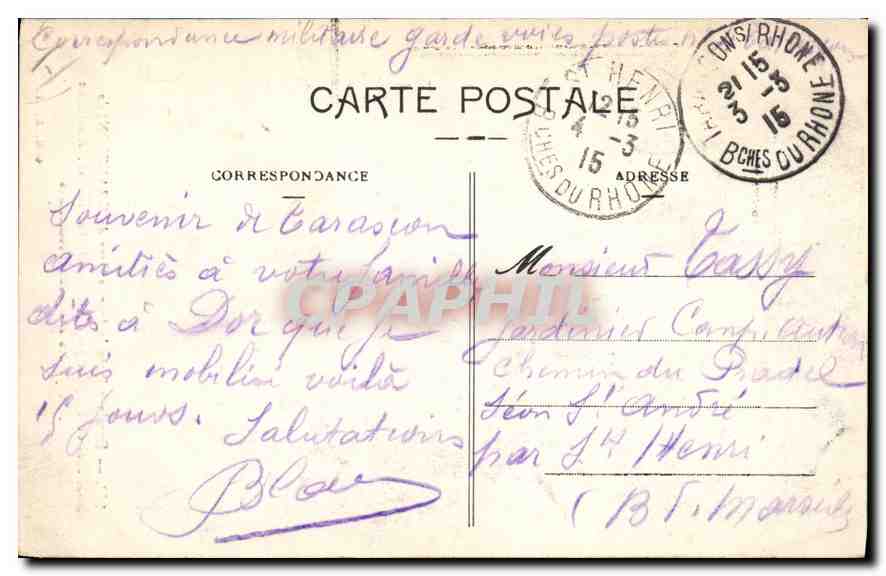 Correspondance militaire garde voies
CARTE POSTALE
ST HENRI
BCHES DU RHONE
4 -3
15
TARASCON S/ RHONE
21 15
3 -3
15
BCHES DU RHONE
CORRESPONDANCE
ADRESSE
Souvenir de Tarascon
amitiés à votre famille
dites à Dor que je
suis mobilisé voilà
15 jours.
Salutations
Monsieur Tassy
Jardinier Camp.
Chemin du Pradel
Séon St André
par St Henri
(B. d. Marseille
CPAPHIL